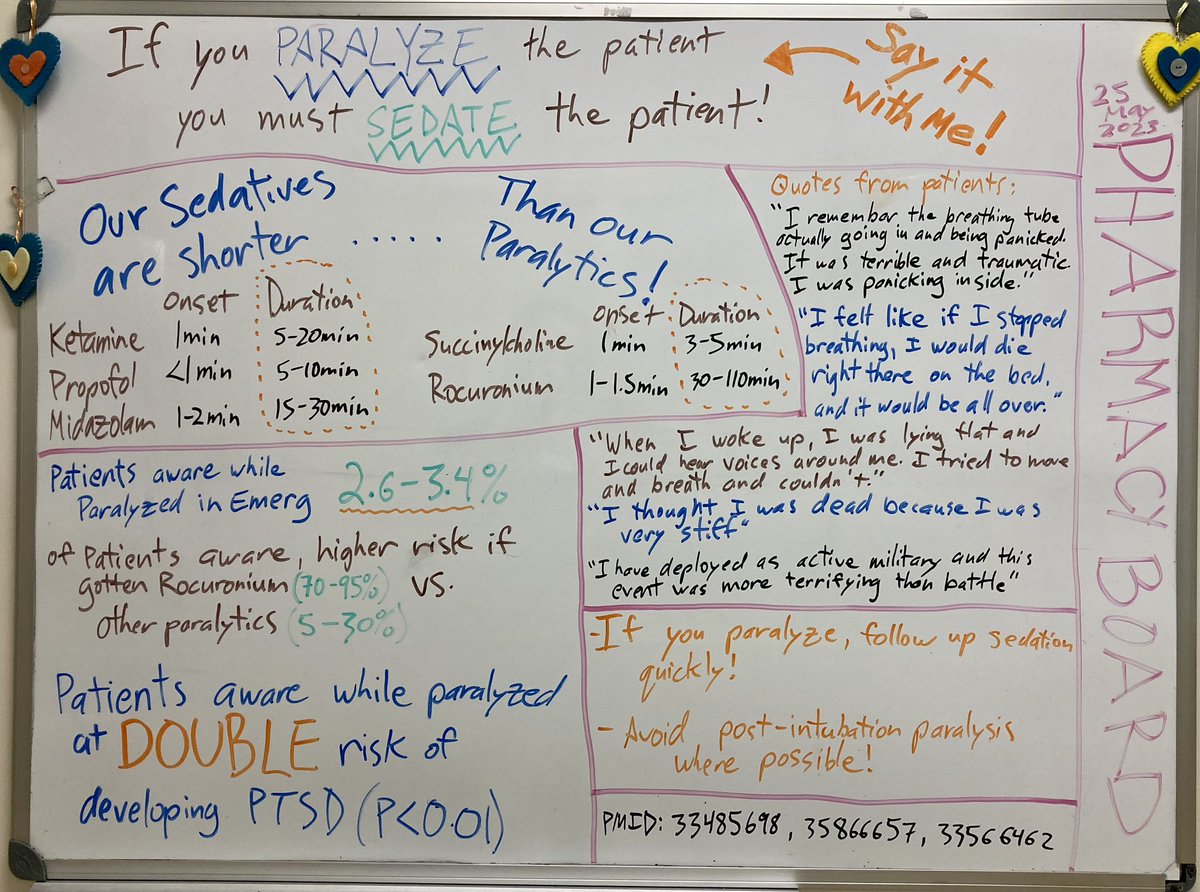 If you PARALYZE the patient
you must SEDATE the patient!
Say it
with Me!
25
May
2023
PHARMACY BOARD
Our Sedatives
are shorter .....
Than our
Paralytics!
onset Duration
Ketamine 1min 5-20min
Propofol <1min 5-10min
Midazolam 1-2min 15-30min
onset Duration
Succinylcholine 1min 3-5min
Rocuronium 1-1.5min 30-110min
Quotes from patients:
"I remember the breathing tube
actually going in and being panicked.
It was terrible and traumatic
I was panicking inside."
"I felt like if I stopped
breathing, I would die
right there on the bed,
and it would be all over."
"When I woke up, I was lying flat and
I could hear voices around me. I tried to move
and breath and couldn't."
"I thought I was dead because I was
very stiff"
"I have deployed as active military and this
event was more terrifying than battle"
Patients aware while
Paralyzed in Emerg 2.6-3.4%
of Patients aware, higher risk if
gotten Rocuronium (70-95%) vs.
other paralytics (5-30%)
Patients aware while paralyzed
at DOUBLE risk of
developing PTSD (P<0.01)
-If you paralyze, follow up sedation
quickly!
- Avoid post-intubation paralysis
where possible!
PMID: 33485698, 35866657, 33566462